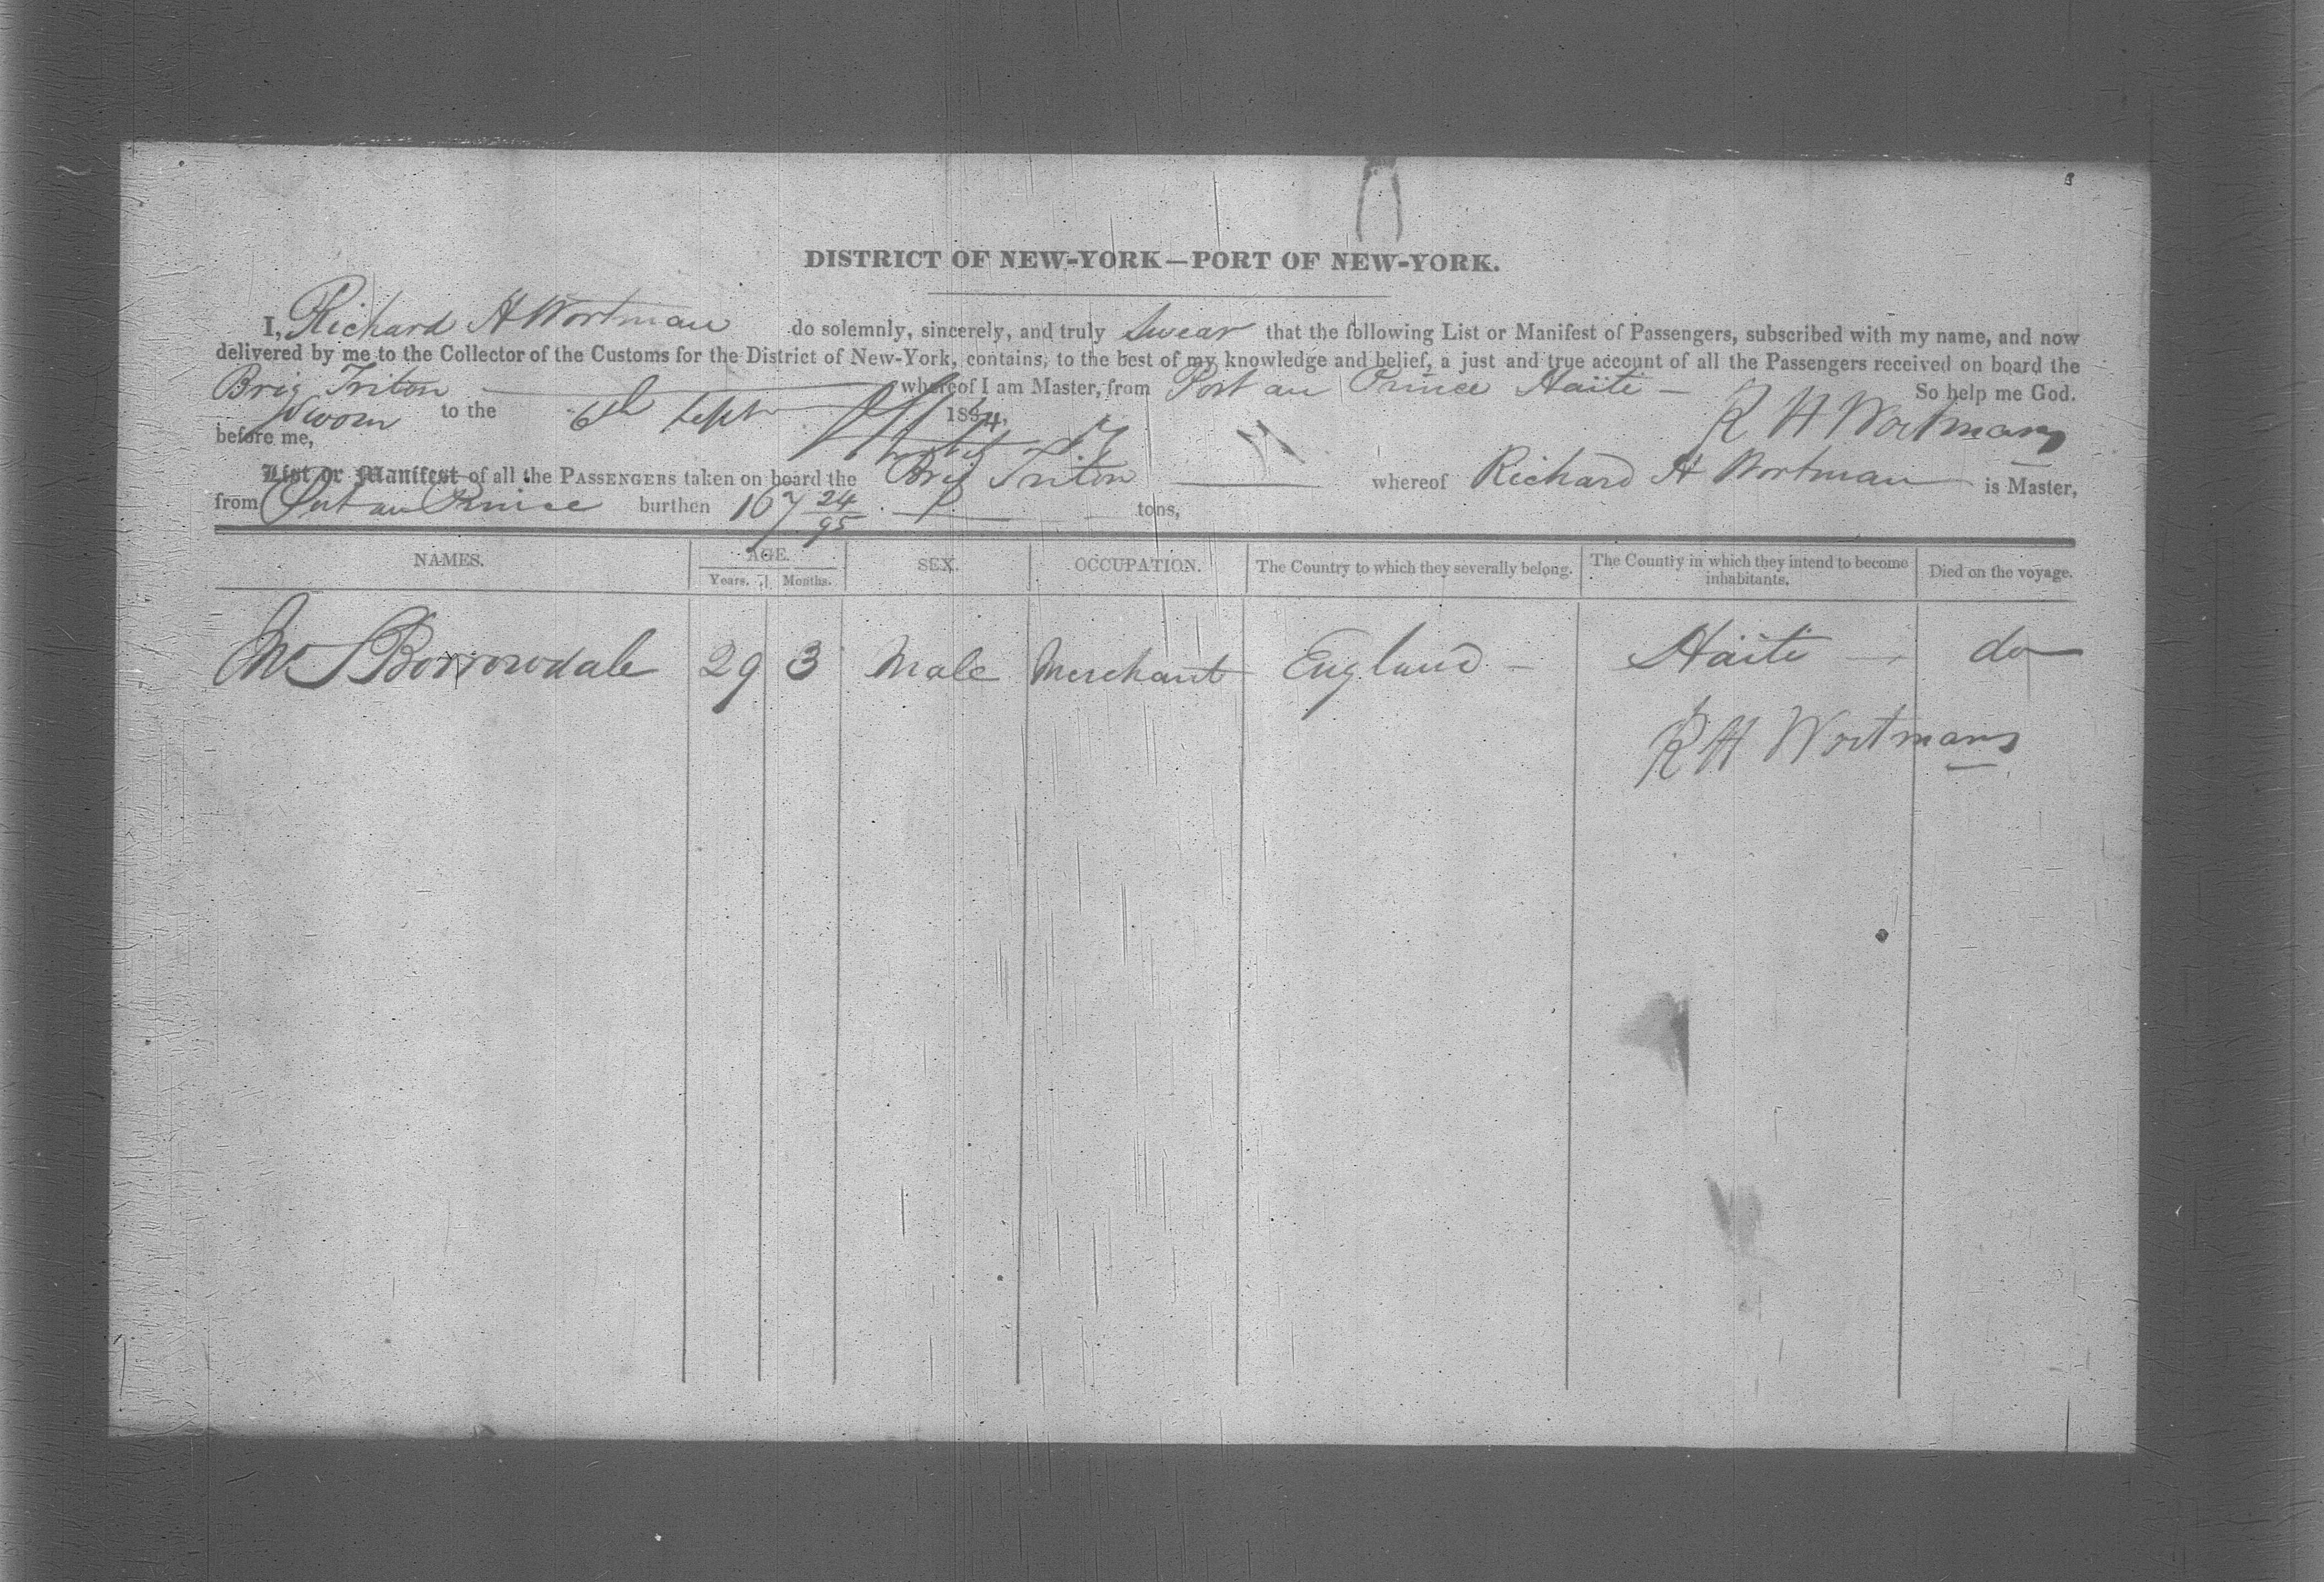 DISTRICT OF NEW-YORK—PORT OF NEW-YORK.
I, Richard H Wortman do solemnly, sincerely, and truly swear that the following List or Manifest of Passengers, subscribed with my name, and now
delivered by me to the Collector of the Customs for the District of New-York, contains, to the best of my knowledge and belief, a just and true account of all the Passengers received on board the
Brig Triton whereof I am Master, from Port au Prince Haiti — So help me God.
Sworn to the 6th Sept 1834, R H Wortman
before me,
List or Manifest of all the PASSENGERS taken on board the Brig Triton whereof Richard H Wortman is Master,
from Port au Prince burthen 167 24/95 tons,
NAMES. AGE. SEX. OCCUPATION. The Country to which they severally belong. The Country in which they intend to become inhabitants. Died on the voyage.
Years. Months.
Mr S Borrowdale 29 3 Male Merchant England — Haiti — do
R H Wortman